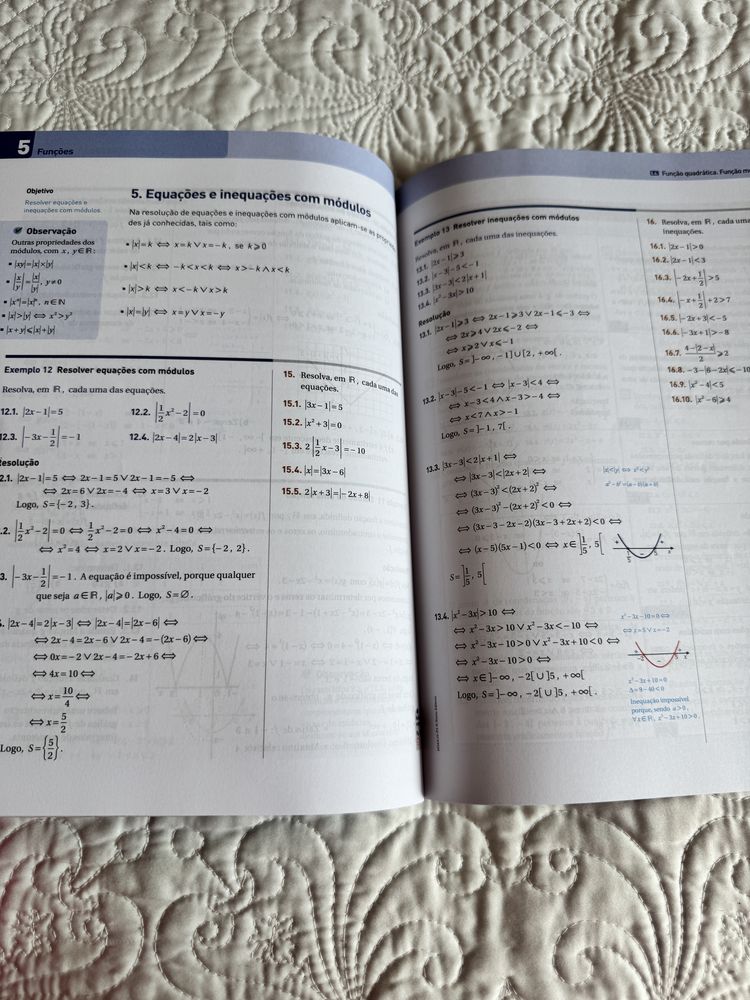 5 Funções
Objetivo
Resolver equações e
inequações com módulos.
Observação
Outras propriedades dos
módulos, com x, y∈ℝ:
• |xy|=|x|×|y|
• |x/y|=|x|/|y|, y≠0
• |xⁿ|=|x|ⁿ, n∈ℕ
• |x|>|y| ⇔ x²>y²
• |x+y|⩽|x|+|y|
5. Equações e inequações com módulos
Na resolução de equações e inequações com módulos aplicam-se as
des já conhecidas, tais como:
• |x|=k ⇔ x=k∨x=-k, se k⩾0
• |x|<k ⇔ -k<x<k ⇔ x>-k∧x<k
• |x|>k ⇔ x<-k∨x>k
• |x|=|y| ⇔ x=y∨x=-y
Exemplo 12 Resolver equações com módulos
Resolva, em ℝ, cada uma das equações.
12.1. |2x-1|=5 12.2. |1/2x²-2|=0
12.3. |-3x-1/2|=-1 12.4. |2x-4|=2|x-3|
Resolução
2.1. |2x-1|=5 ⇔ 2x-1=5∨2x-1=-5 ⇔
⇔ 2x=6∨2x=-4 ⇔ x=3∨x=-2
Logo, S={-2, 3}.
.2. |1/2x²-2|=0 ⇔ 1/2x²-2=0 ⇔ x²-4=0 ⇔
⇔ x²=4 ⇔ x=2∨x=-2. Logo, S={-2, 2}.
3. |-3x-1/2|=-1. A equação é impossível, porque qualquer
que seja a∈ℝ, |a|⩾0. Logo, S=∅.
. |2x-4|=2|x-3| ⇔ |2x-4|=|2x-6| ⇔
⇔ 2x-4=2x-6∨2x-4=-(2x-6) ⇔
⇔ 0x=-2∨2x-4=-2x+6 ⇔
⇔ 4x=10 ⇔
⇔ x=10/4 ⇔
⇔ x=5/2
Logo, S={5/2}.
15. Resolva, em ℝ, cada uma das
equações.
15.1. |3x-1|=5
15.2. |x²+3|=0
15.3. 2|1/2x-3|=-10
15.4. |x|=|3x-6|
15.5. 2|x+3|=|-2x+8|
Função quadrática. Função
Exemplo 13 Resolver inequações com módulos
Resolva, em ℝ, cada uma das inequações.
13.1. |2x-1|⩾3
13.2. |x-3|-5<-1
13.3. |3x-3|<2|x+1|
13.4. |x²-3x|>10
Resolução
13.1. |2x-1|⩾3 ⇔ 2x-1⩾3∨2x-1⩽-3 ⇔
⇔ 2x⩾4∨2x⩽-2 ⇔
⇔ x⩾2∨x⩽-1
Logo, S=]-∞, -1]∪[2, +∞[.
13.2. |x-3|-5<-1 ⇔ |x-3|<4 ⇔
⇔ x-3<4∧x-3>-4 ⇔
⇔ x<7∧x>-1
Logo, S=]-1, 7[.
13.3. |3x-3|<2|x+1| ⇔
⇔ |3x-3|<|2x+2| ⇔
⇔ (3x-3)²<(2x+2)² ⇔
⇔ (3x-3)²-(2x+2)²<0 ⇔
⇔ (3x-3-2x-2)(3x-3+2x+2)<0 ⇔
⇔ (x-5)(5x-1)<0 ⇔ x∈]1/5, 5[
S=]1/5, 5[
|x|<|y| ⇔ x²<y²
a²-b²=(a-b)(a+b)
+ - +
1/5 5 x
13.4. |x²-3x|>10 ⇔
⇔ x²-3x>10∨x²-3x<-10 ⇔
⇔ x²-3x-10>0∨x²-3x+10<0 ⇔
⇔ x²-3x-10>0 ⇔
⇔ x∈]-∞, -2[∪]5, +∞[
Logo, S=]-∞, -2[∪]5, +∞[.
x²-3x-10=0 ⇔
⇔ x=5∨x=-2
+ - +
-2 5 x
x²-3x+10=0
Δ=9-40<0
Inequação impossível
porque, sendo a>0,
∀x∈ℝ, x²-3x+10>0.
16. Resolva, em ℝ, cada uma
inequações.
16.1. |2x-1|>0
16.2. |2x-1|<3
16.3. |-2x+1/2|>5
16.4. |-x+1/2|+2>7
16.5. |-2x+3|<-5
16.6. |-3x+1|>-8
16.7. 4-|2-x|/2⩾2
16.8. -3-|6-2x|⩽-10
16.9. |x²-4|<5
16.10. |x²-6|⩾4